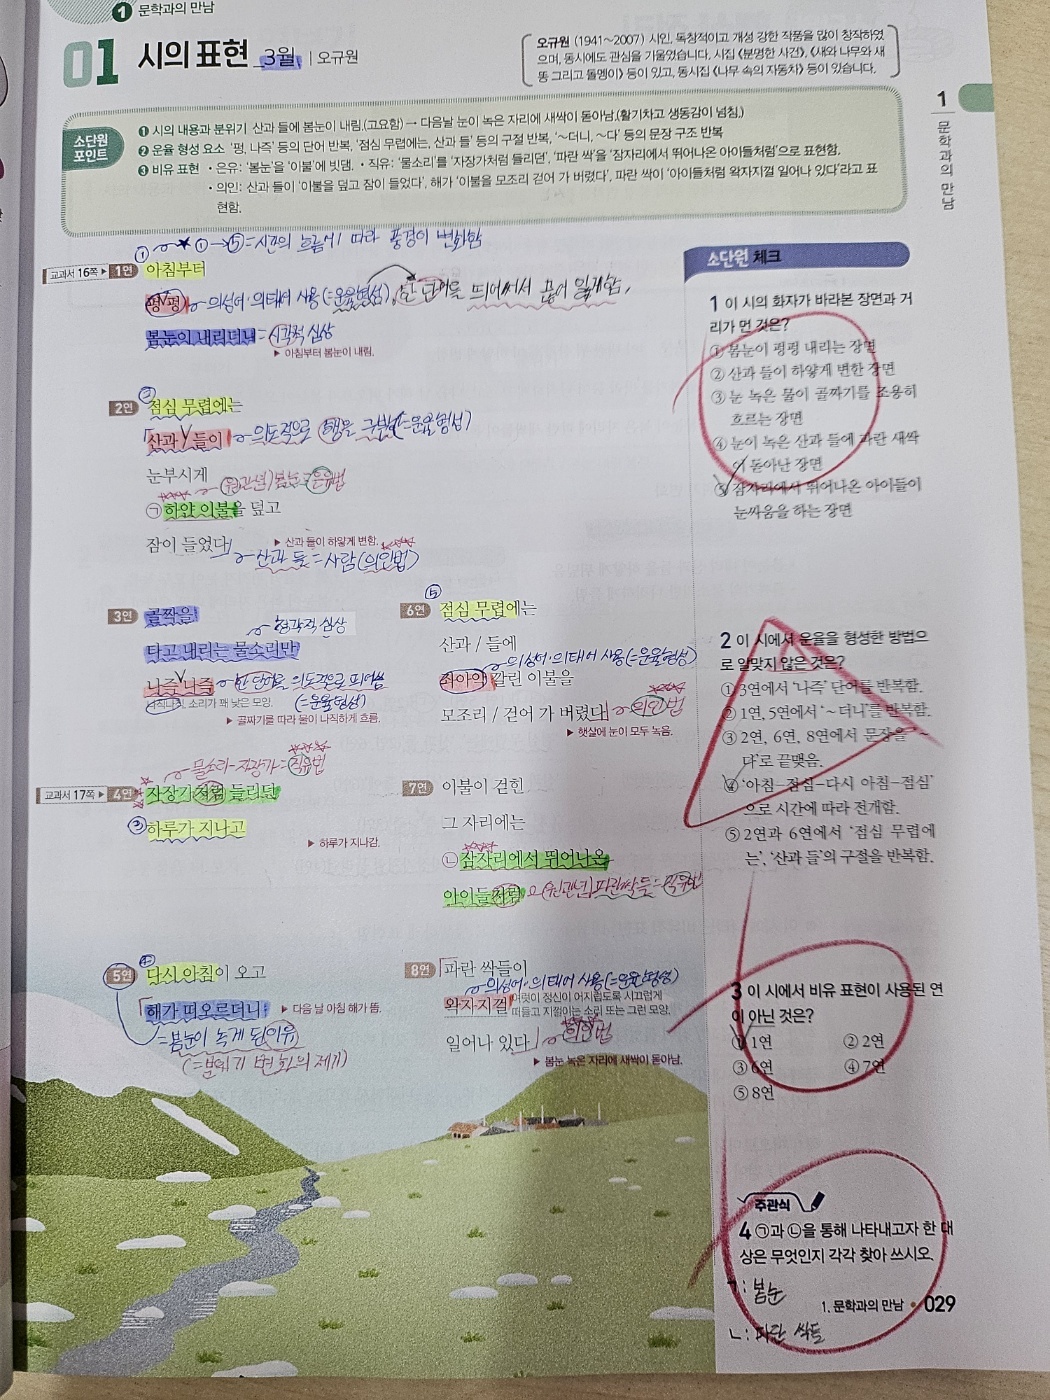 1 문학과의 만남
01 시의 표현 3월 | 오규원
오규원 (1941~2007) 시인. 독창적이고 개성 강한 작품을 많이 창작하였
으며, 동시에도 관심을 기울였습니다. 시집 《분명한 사건》, 《새와 나무와 새
똥 그리고 돌멩이》 등이 있고, 동시집 《나무 속의 자동차》 등이 있습니다.
1 문학과의 만남
소단원
포인트
❶ 시의 내용과 분위기 산과 들에 봄눈이 내림.(고요함) → 다음날 눈이 녹은 자리에 새싹이 돋아남.(활기차고 생동감이 넘침.)
❷ 운율 형성 요소 '펑, 나즉' 등의 단어 반복, '점심 무렵에는, 산과 들' 등의 구절 반복, '~더니, ~다' 등의 문장 구조 반복
❸ 비유 표현 • 은유: '봄눈'을 '이불'에 빗댐. • 직유: '물소리'를 '자장가처럼 들리던', '파란 싹'을 '잠자리에서 뛰어나온 아이들처럼'으로 표현함.
• 의인: 산과 들이 '이불을 덮고 잠이 들었다', 해가 '이불을 모조리 걷어 가 버렸다', 파란 싹이 '아이들처럼 왁자지껄 일어나 있다'라고 표
현함.
★ ①→⑤=시간의 흐름에 따라 풍경이 변화함
①
교과서 16쪽 ▶ 1연 아침부터
펑 펑 의성어·의태어 사용(=운율형성), 한 단어를 띄어써서 끊어 읽게함.
봄눈이 내리더니=시각적 심상
▶ 아침부터 봄눈이 내림.
②
2연 점심 무렵에는
산과∨들이 의도적으로 행을 구분(=운율형성)
눈부시게
(원관념)봄눈=은유법
㉠하얀 이불을 덮고
잠이 들었다
▶ 산과 들이 하얗게 변함.
산과 들=사람(의인법)
3연 골짝을
청각적 심상
타고 내리는 물소리만
나즉∨나즉 한 단어를 의도적으로 띄어씀
나직나직. 소리가 꽤 낮은 모양. (=운율형성)
▶ 골짜기를 따라 물이 나직하게 흐름.
물소리-자장가=직유법
교과서 17쪽 ▶ 4연 자장가처럼 들리던
③ 하루가 지나고
▶ 하루가 지나감.
④
5연 다시 아침이 오고
해가 떠오르더니
▶ 다음 날 아침 해가 뜸.
=봄눈이 녹게 된 이유
(=분위기 변화의 계기)
⑤
6연 점심 무렵에는
산과 / 들에
의성어·의태어 사용(=운율형성)
좌아악 깔린 이불을
모조리 / 걷어 가 버렸다 의인법
▶ 햇살에 눈이 모두 녹음.
7연 이불이 걷힌
그 자리에는
㉡잠자리에서 뛰어나온
아이들처럼 (원관념)파란싹들=직유법
8연 파란 싹들이
의성어·의태어 사용(=운율형성)
왁자지껄 여럿이 정신이 어지럽도록 시끄럽게
떠들고 지껄이는 소리. 또는 그런 모양.
일어나 있다 의인법
▶ 봄눈 녹은 자리에 새싹이 돋아남.
소단원 체크
1 이 시의 화자가 바라본 장면과 거
리가 먼 것은?
① 봄눈이 펑펑 내리는 장면
② 산과 들이 하얗게 변한 장면
③ 눈 녹은 물이 골짜기를 조용히
흐르는 장면
④ 눈이 녹은 산과 들에 파란 새싹
이 돋아난 장면
⑤ 잠자리에서 뛰어나온 아이들이
눈싸움을 하는 장면
2 이 시에서 운율을 형성한 방법으
로 알맞지 않은 것은?
① 3연에서 '나즉' 단어를 반복함.
② 1연, 5연에서 '~더니'를 반복함.
③ 2연, 6연, 8연에서 문장을 '~
다'로 끝맺음.
④ '아침-점심-다시 아침-점심'
으로 시간에 따라 전개함.
⑤ 2연과 6연에서 '점심 무렵에
는', '산과 들'의 구절을 반복함.
3 이 시에서 비유 표현이 사용된 연
이 아닌 것은?
① 1연 ② 2연
③ 6연 ④ 7연
⑤ 8연
주관식
4 ㉠과 ㉡을 통해 나타내고자 한 대
상은 무엇인지 각각 찾아 쓰시오.
ㄱ: 봄눈
ㄴ: 파란 싹들
1. 문학과의 만남 • 029